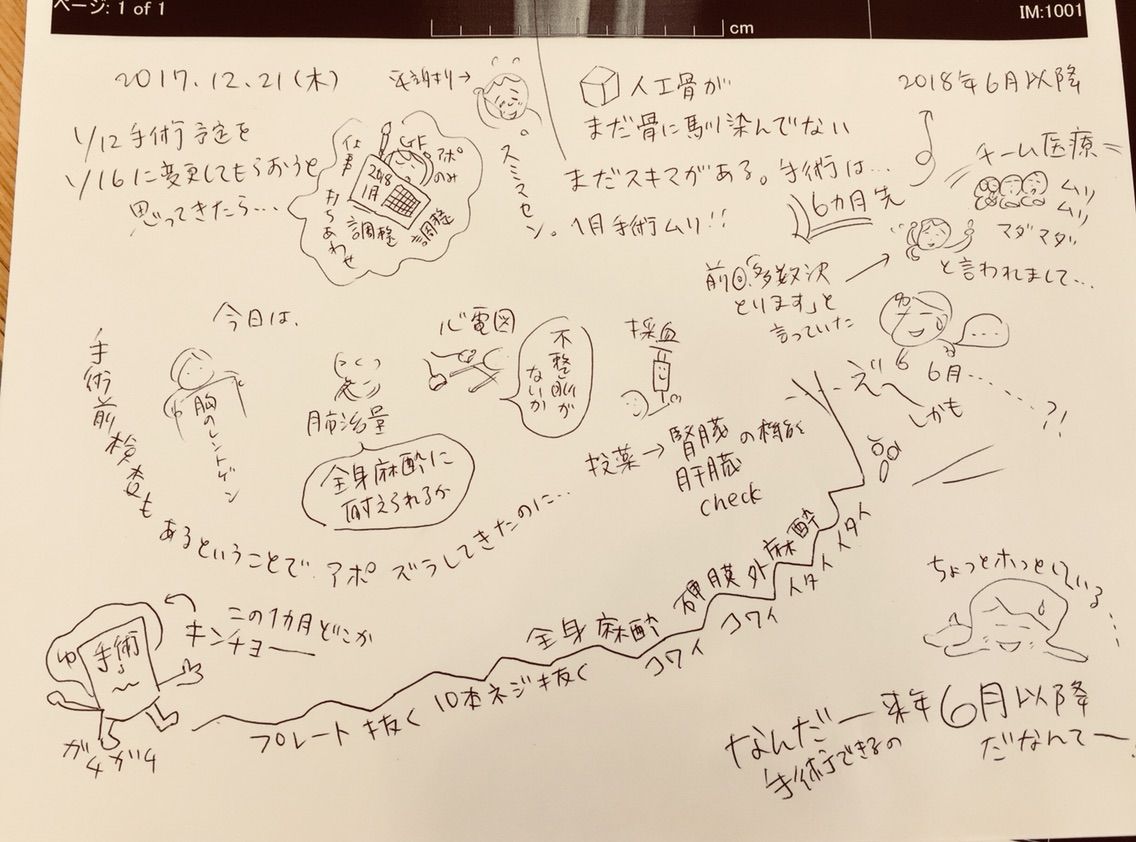 ページ: 1 of 1
cm
IM:1001
2017.12.21(木)
1/12 手術予定を
1/16に変更してもらおうと
思ってきたら…
仕事
打ちあわせ
2018
1月
調整
GF
アポ
のみ
調整
平謝り→
スミマセン。
人工骨が
まだ骨に馴染んでない
まだスキマがある。手術は…
1月手術ムリ!!
6カ月先
2018年6月以降
チーム医療=
ムリ
ムリ
マダマダ
と言われまして…
前回、「多数決
とります」と
言っていた
ゆ
……
6
6月……?!
えー
しかも
今日は、
胸のレントゲン
肺活量
全身麻酔に
耐えられるか
心電図
不整脈が
ないか
採血
投薬→腎臓の機能
肝臓
check
手術前検査も
あるということで アポ ズラしてきたのに…
この1カ月どこか
キンチョー
ゆ
手術
ガクガク
プレート抜く
10本ネジ抜く
全身麻酔
コワイ
硬膜外麻酔
コワイ
イタイ
イタイ
ちょっとホッとしている…
なんだー来年6月以降
手術できるの
だなんてー